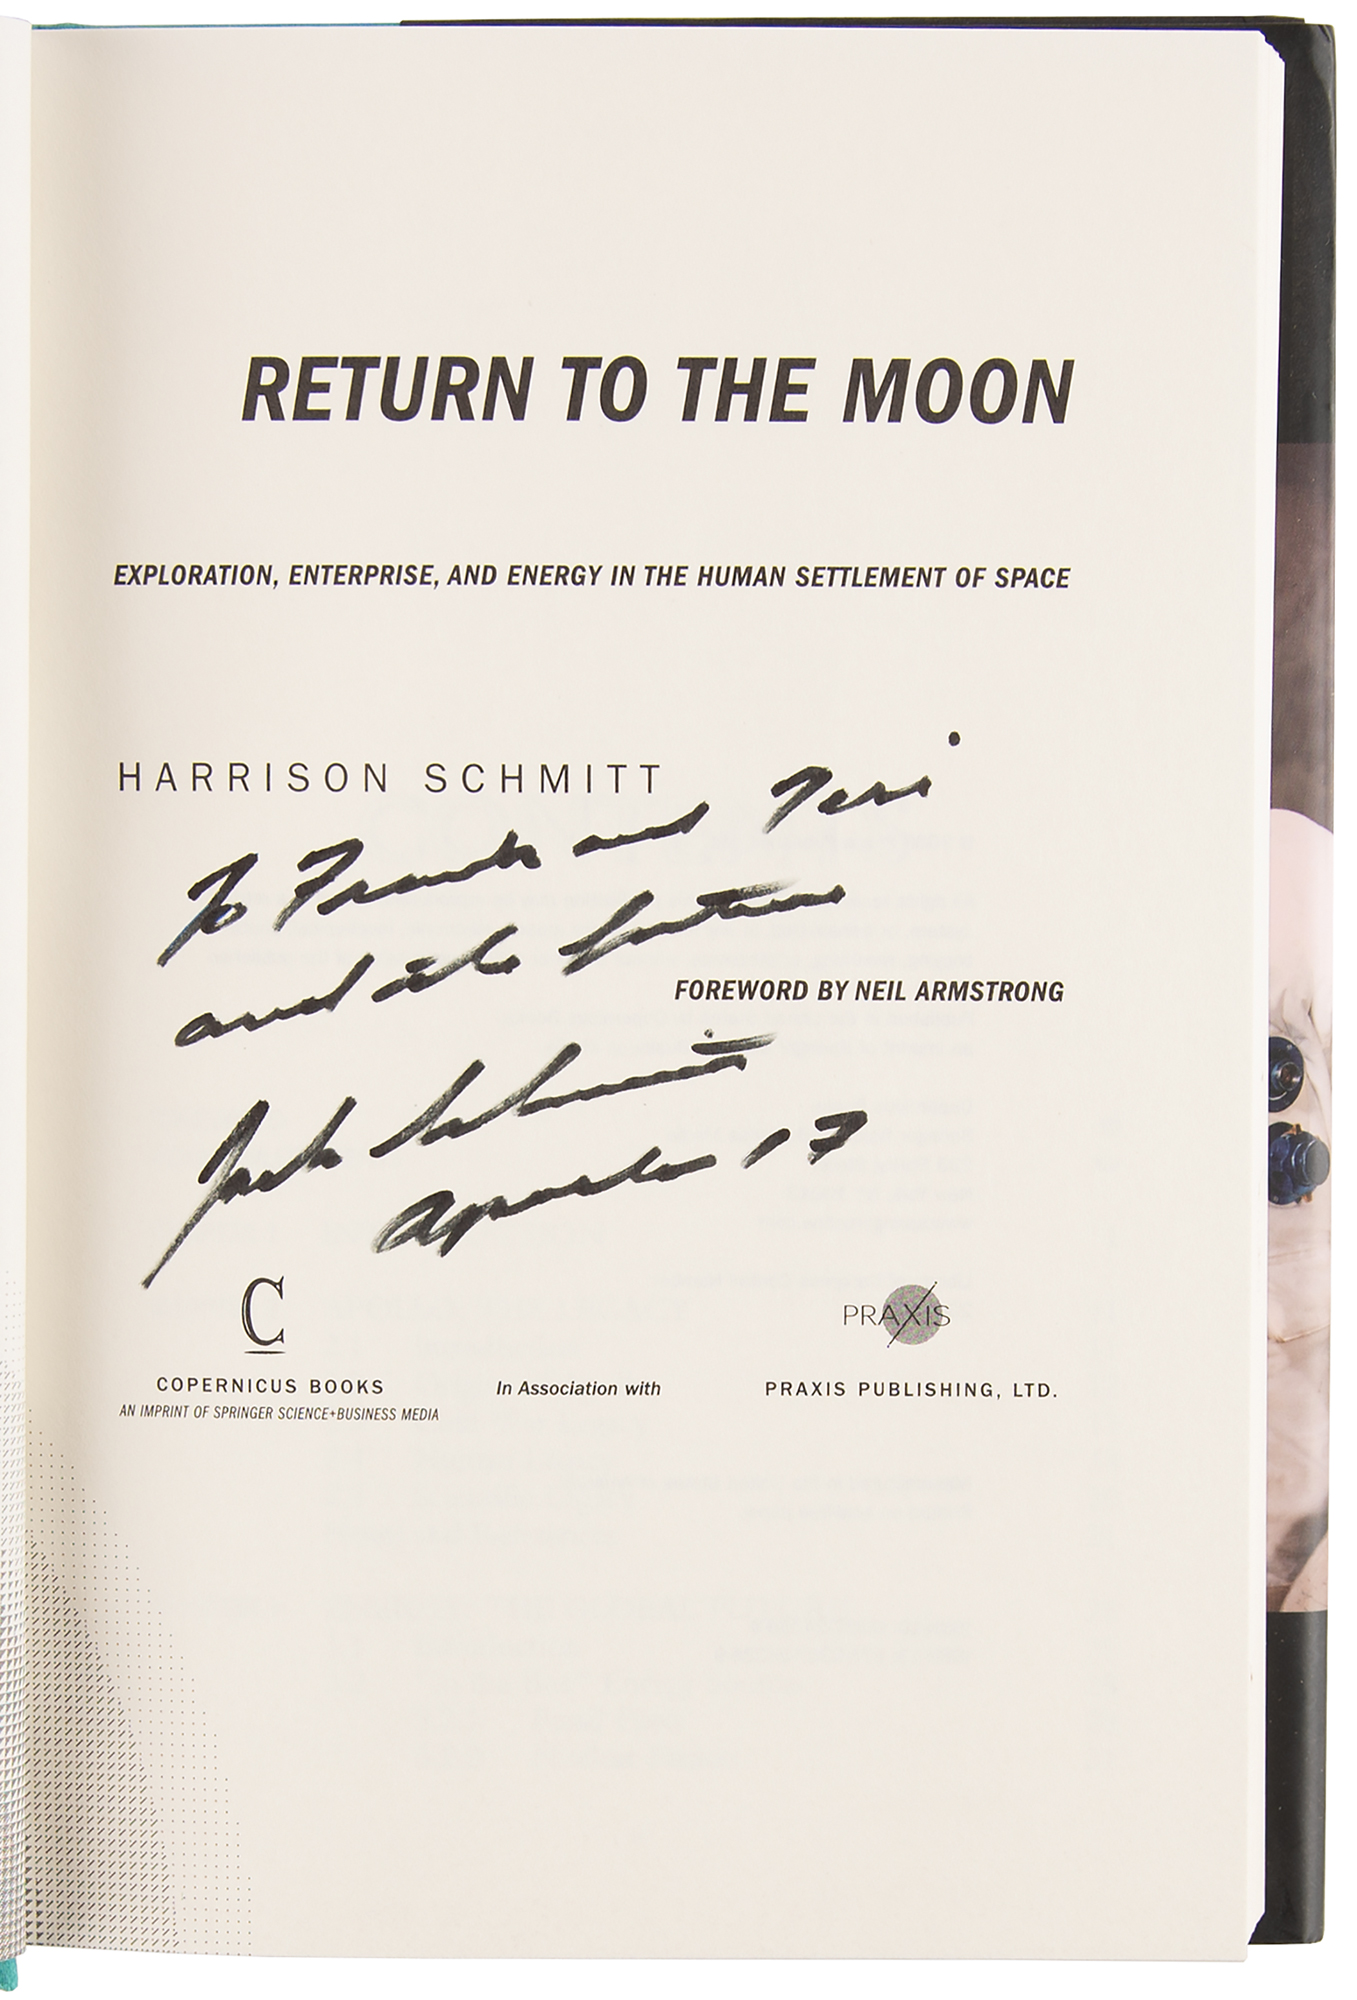 RETURN TO THE MOON
EXPLORATION, ENTERPRISE, AND ENERGY IN THE HUMAN SETTLEMENT OF SPACE
HARRISON SCHMITT
To Frank and Teri
and the future
FOREWORD BY NEIL ARMSTRONG
Jack Schmitt
Apollo 17
C
PRAXIS
COPERNICUS BOOKS
AN IMPRINT OF SPRINGER SCIENCE+BUSINESS MEDIA
In Association with
PRAXIS PUBLISHING, LTD.